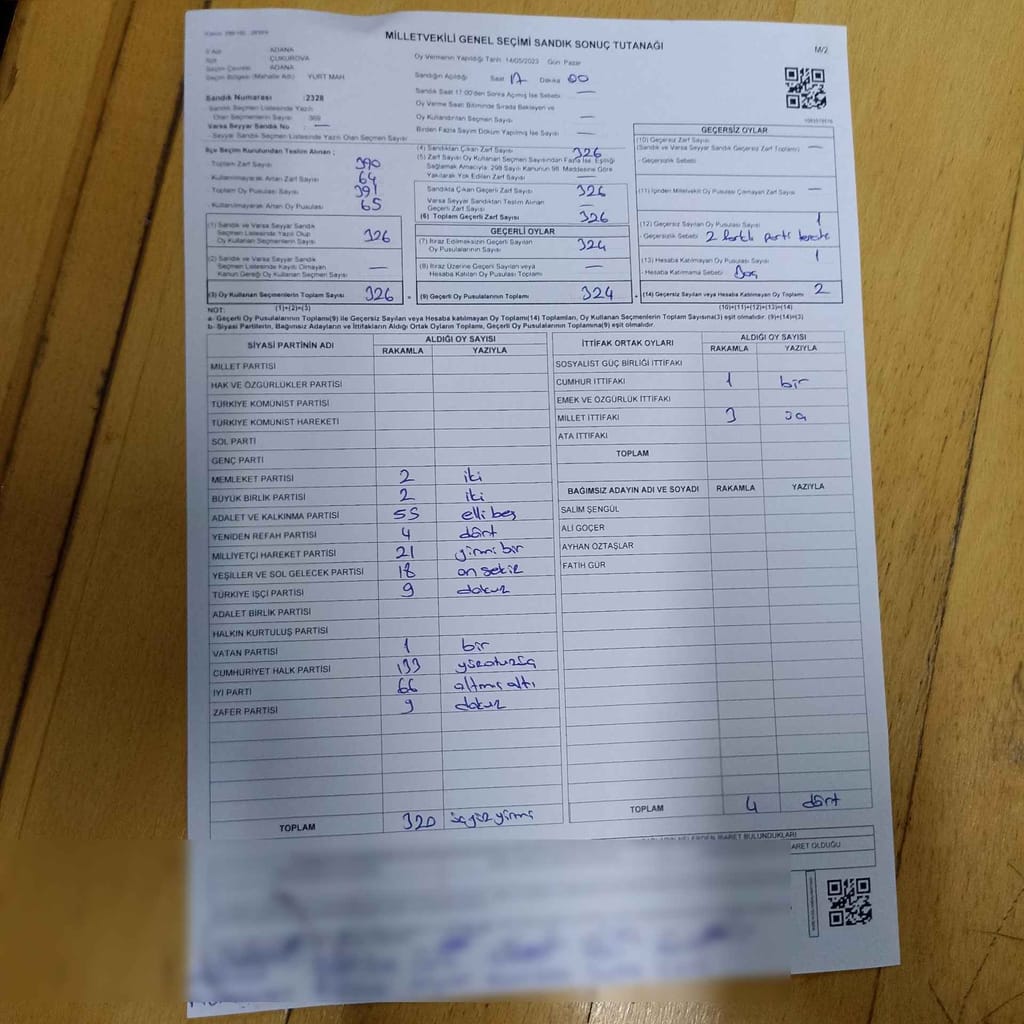 MİLLETVEKİLİ GENEL SEÇİMİ SANDIK SONUÇ TUTANAĞI
M/2
İl Adı ADANA
İlçe ÇUKUROVA
Seçim Çevresi ADANA
Seçim Bölgesi (Mahalle Adı) YURT MAH
Oy Vermenin Yapıldığı Tarih 14/05/2023 Gün Pazar
Sandığın Açıldığı Saat 17 Dakika 00
Sandık Saat 17:00'den Sonra Açılmış İse Sebebi —
Oy Verme Saati Bitiminde Sırada Bekleyen ve
Oy Kullandırılan Seçmen Sayısı —
Birden Fazla Sayım Döküm Yapılmış İse Sayısı —
Sandık Numarası :2328
Sandık Seçmen Listesinde Yazılı
Olan Seçmenlerin Sayısı 369
Varsa Seyyar Sandık No —
Seyyar Sandık Seçmen Listesinde Yazılı Olan Seçmen Sayısı
İlçe Seçim Kurulundan Teslim Alınan ;
Toplam Zarf Sayısı 390
Kullanılmayarak Artan Zarf Sayısı 64
Toplam Oy Pusulası Sayısı 391
Kullanılmayarak Artan Oy Pusulası 65
(1) Sandık ve Varsa Seyyar Sandık
Seçmen Listesinde Yazılı Olup
Oy Kullanan Seçmenlerin Sayısı 326
(2) Sandık ve Varsa Seyyar Sandık
Seçmen Listesinde Kayıtlı Olmayan
Kanun Gereği Oy Kullanan Seçmen Sayısı —
(3) Oy Kullanan Seçmenlerin Toplam Sayısı 326
(1)+(2)=(3)
(4) Sandıktan Çıkan Zarf Sayısı 326
(5) Zarf Sayısı Oy Kullanan Seçmen Sayısından Fazla İse, Eşitliği
Sağlamak Amacıyla; 298 Sayılı Kanunun 98. Maddesine Göre
Yakılarak Yok Edilen Zarf Sayısı —
Sandıkta Çıkan Geçerli Zarf Sayısı 326
Varsa Seyyar Sandıktan Teslim Alınan
Geçerli Zarf Sayısı —
(6) Toplam Geçerli Zarf Sayısı 326
GEÇERLİ OYLAR
(7) İtiraz Edilmeksizin Geçerli Sayılan
Oy Pusulalarının Sayısı 324
(8) İtiraz Üzerine Geçerli Sayılan veya
Hesaba Katılan Oy Pusulası Toplamı —
(9) Geçerli Oy Pusulalarının Toplamı 324
GEÇERSİZ OYLAR
(10) Geçersiz Zarf Sayısı
(Sandık ve Varsa Seyyar Sandık Geçersiz Zarf Toplamı) —
- Geçersizlik Sebebi
(11) İçinden Milletvekili Oy Pusulası Çıkmayan Zarf Sayısı —
(12) Geçersiz Sayılan Oy Pusulası Sayısı 1
- Geçersizlik Sebebi 2 farklı parti
(13) Hesaba Katılmayan Oy Pusulası Sayısı 1
- Hesaba Katılmama Sebebi Boş
(14) Geçersiz Sayılan veya Hesaba Katılmayan Oy Toplamı 2
(10)+(11)+(12)+(13)=(14)
NOT:
a- Geçerli Oy Pusulalarının Toplamı(9) ile Geçersiz Sayılan veya Hesaba Katılmayan Oy Toplamı(14) Toplamları, Oy Kullanan Seçmenlerin Toplam Sayısına(3) eşit olmalıdır. (9)+(14)=(3)
b- Siyasi Partilerin, Bağımsız Adayların ve İttifakların Aldığı Ortak Oyların Toplamı, Geçerli Oy Pusulalarının Toplamına(9) eşit olmalıdır.
SİYASİ PARTİNİN ADI ALDIĞI OY SAYISI
RAKAMLA YAZIYLA
MİLLET PARTİSİ
HAK VE ÖZGÜRLÜKLER PARTİSİ
TÜRKİYE KOMÜNİST PARTİSİ
TÜRKİYE KOMÜNİST HAREKETİ
SOL PARTİ
GENÇ PARTİ
MEMLEKET PARTİSİ 2 iki
BÜYÜK BİRLİK PARTİSİ 2 iki
ADALET VE KALKINMA PARTİSİ 55 elli beş
YENİDEN REFAH PARTİSİ 4 dört
MİLLİYETÇİ HAREKET PARTİSİ 21 yirmi bir
YEŞİLLER VE SOL GELECEK PARTİSİ 18 on sekiz
TÜRKİYE İŞÇİ PARTİSİ 9 dokuz
ADALET BİRLİK PARTİSİ
HALKIN KURTULUŞ PARTİSİ
VATAN PARTİSİ 1 bir
CUMHURİYET HALK PARTİSİ 133 yüzotuzüç
İYİ PARTİ 66 altmış altı
ZAFER PARTİSİ 9 dokuz
TOPLAM 320 üçyüz yirmi
İTTİFAK ORTAK OYLARI ALDIĞI OY SAYISI
RAKAMLA YAZIYLA
SOSYALİST GÜÇ BİRLİĞİ İTTİFAKI
CUMHUR İTTİFAKI 1 bir
EMEK VE ÖZGÜRLÜK İTTİFAKI
MİLLET İTTİFAKI 3 üç
ATA İTTİFAKI
TOPLAM
BAĞIMSIZ ADAYIN ADI VE SOYADI RAKAMLA YAZIYLA
SALİM ŞENGÜL
ALİ GÖÇER
AYHAN ÖZTAŞLAR
FATİH GÜR
TOPLAM 4 dört
İBARET BULUNDUKLARI
ARET OLDUĞU